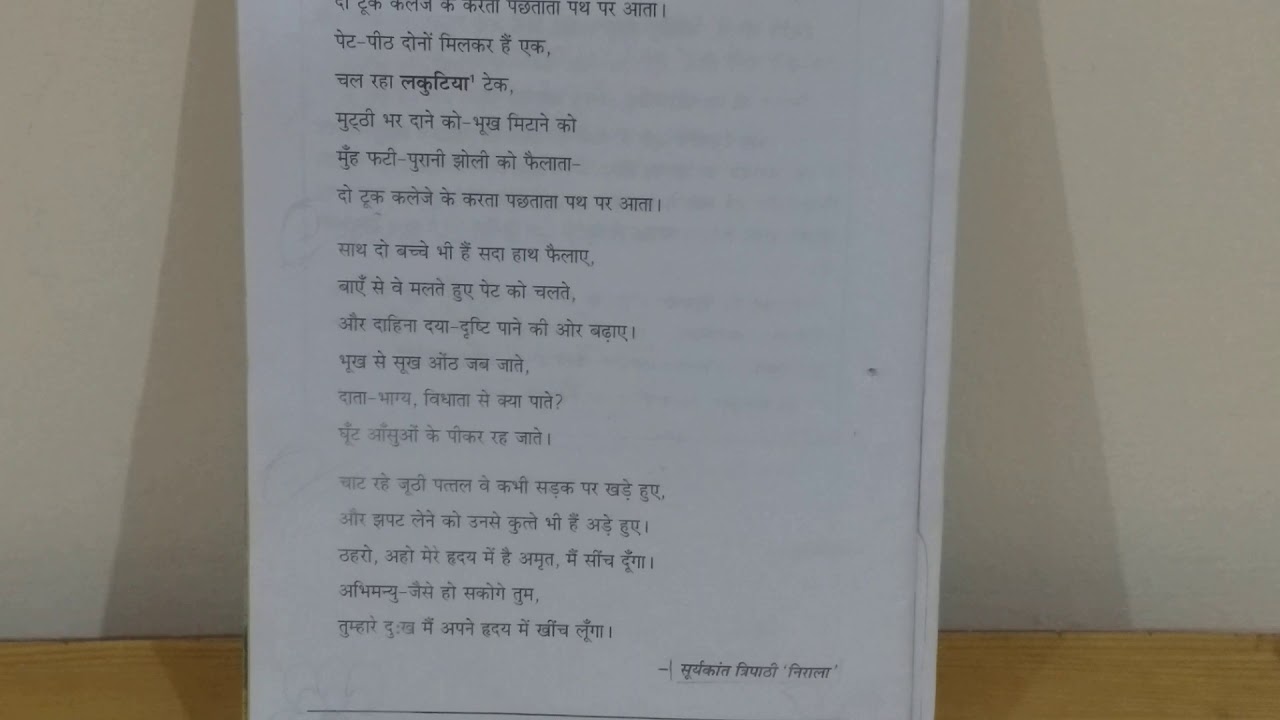 दो टूक कलेजे के करता पछताता पथ पर आता।
पेट-पीठ दोनों मिलकर हैं एक,
चल रहा लकुटिया¹ टेक,
मुट्ठी भर दाने को-भूख मिटाने को
मुँह फटी-पुरानी झोली को फैलाता-
दो टूक कलेजे के करता पछताता पथ पर आता।
साथ दो बच्चे भी हैं सदा हाथ फैलाए,
बाएँ से वे मलते हुए पेट को चलते,
और दाहिना दया-दृष्टि पाने की ओर बढ़ाए।
भूख से सूख ओंठ जब जाते,
दाता-भाग्य, विधाता से क्या पाते?
घूँट आँसुओं के पीकर रह जाते।
चाट रहे जूठी पत्तल वे कभी सड़क पर खड़े हुए,
और झपट लेने को उनसे कुत्ते भी हैं अड़े हुए।
ठहरो, अहो मेरे हृदय में है अमृत, मैं सींच दूँगा।
अभिमन्यु-जैसे हो सकोगे तुम,
तुम्हारे दुःख मैं अपने हृदय में खींच लूँगा।
-| सूर्यकांत त्रिपाठी 'निराला'